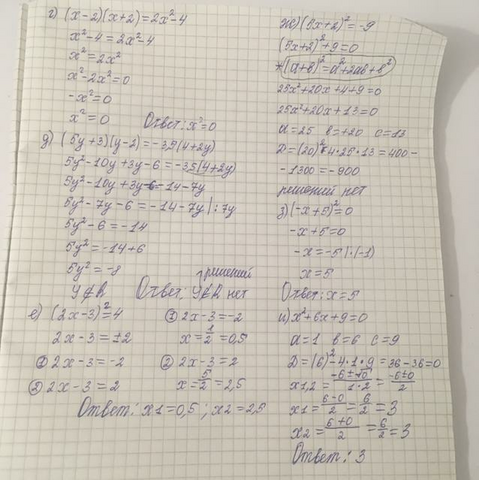 г) (x-2)(x+2)=2x²-4
x²-4=2x²-4
x²=2x²
x²-2x²=0
-x²=0
x²=0 Ответ: x²=0
д) (5y+3)(y-2)=-3,5(4+2y)
5y²-10y+3y-6=-3,5(4+2y)
5y²-10y+3y-6=-14-7y
5y²-7y-6=-14-7y |:7y
5y²-6=-14
5y²=-14+6
5y²=-8
y∉R Ответ: y∉R решений нет
е) (2x-3)²=4
2x-3=±2
① 2x-3=-2
② 2x-3=2
① 2x-3=-2
x=1/2=0,5
② 2x-3=2
x=5/2=2,5
Ответ: x1=0,5; x2=2,5
ж) (5x+2)²=-9
(5x+2)²+9=0
*(a+b)²=a²+2ab+b²
25x²+20x+4+9=0
25x²+20x+13=0
a=25 b=+20 c=13
D=(20)²-4·25·13=400-
-1300=-900
решений нет
з) (-x+5)²=0
-x+5=0
-x=-5 |·(-1)
x=5
Ответ: x=5
и) x²+6x+9=0
a=1 b=6 c=9
D=(6)²-4·1·9=36-36=0
x1,2=-6±√0/1·2=-6±0/2
x1=6-0/2=6/2=3
x2=6+0/2=6/2=3
Ответ: 3